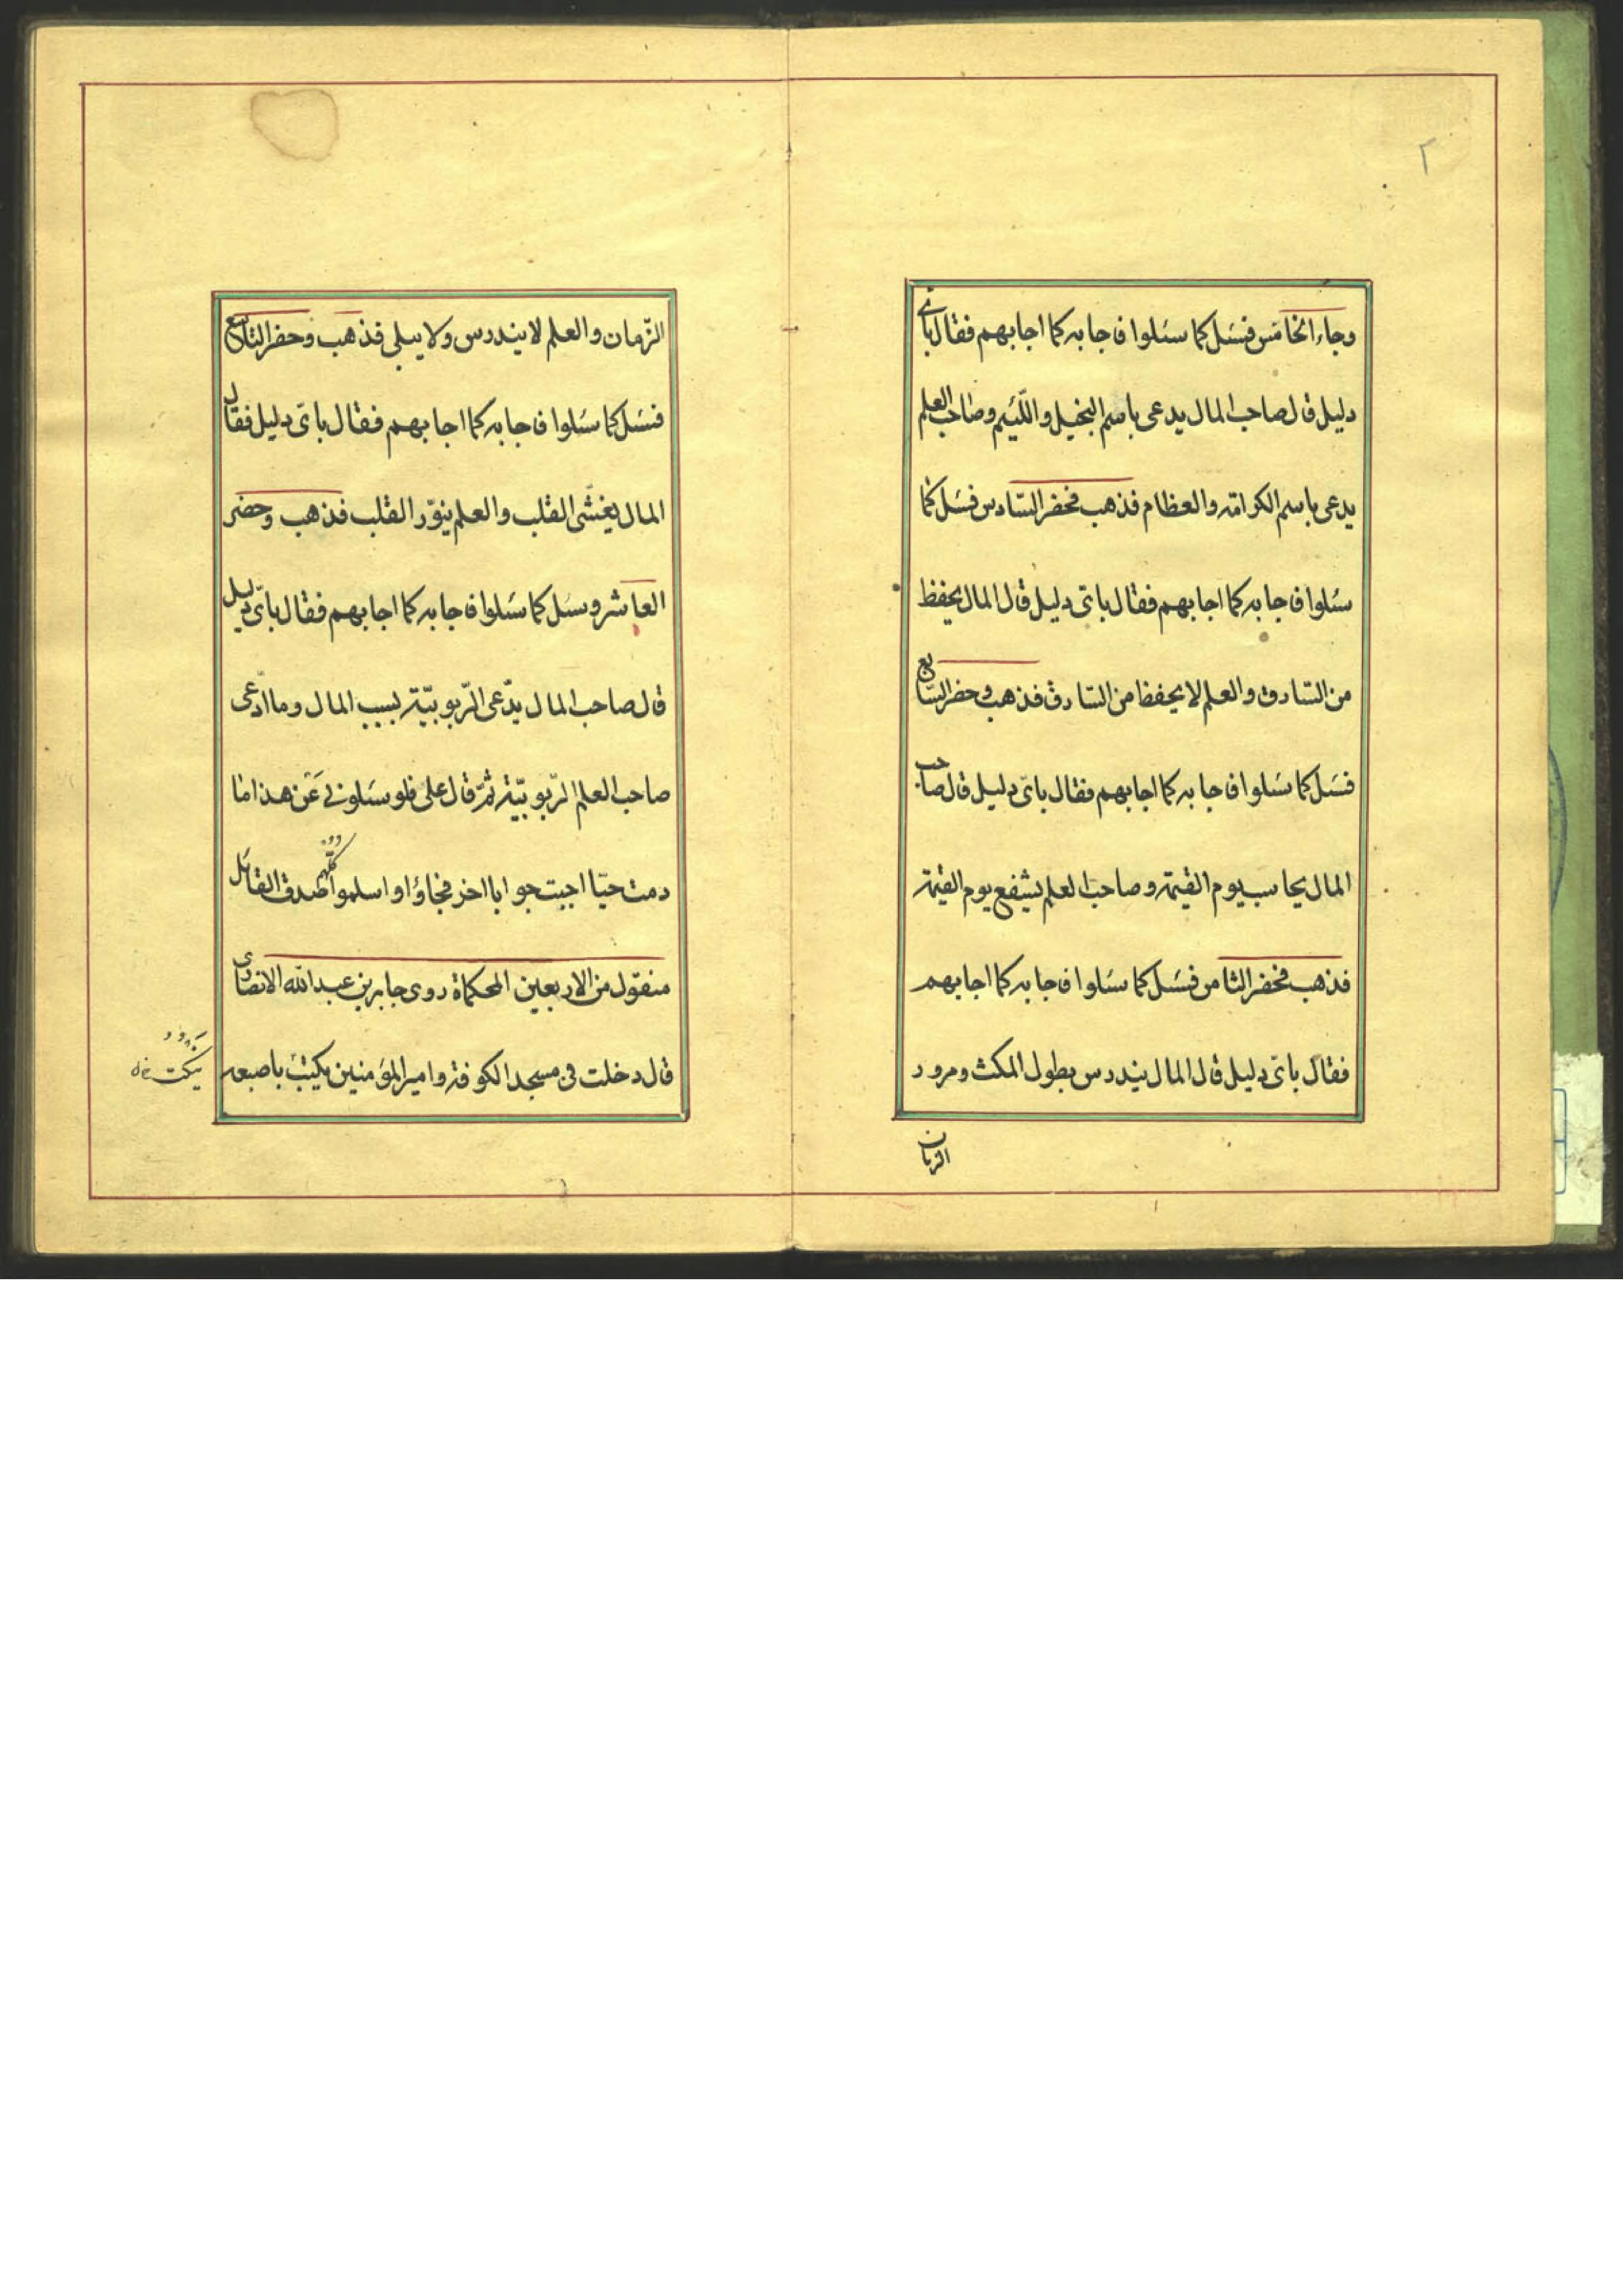 ٢
وجاء الخامس فسئل كما سئلوا فاجابه كما اجابهم فقال باى
دليل قال صاحب المال يدعى باسم البخيل واللّئيم وصاحب العلم
يدعى باسم الكرامة والعظام فذهب فحضر السّادس فسئل كما
سئلوا فاجابه كما اجابهم فقال باىّ دليل قال المال يحفظ
من السّارق والعلم لا يحفظ من السّارق فذهب وحضر السّابع
فسئل كما سئلوا فاجابه كما اجابهم فقال باىّ دليل قال صاحب
المال يحاسب يوم القيمة وصاحب العلم يشفع يوم القيمة
فذهب فحضر الثامن فسئل كما سئلوا فاجابه كما اجابهم
فقال باىّ دليل قال المال يندرس بطول المكث ومرور
الزمان
الزّمان والعلم لا يندرس ولا يبلى فذهب وحضر التاسع
فسئل كما سئلوا فاجابه كما اجابهم فقال باىّ دليل فقال
المال يغشّى القلب والعلم ينوّر القلب فذهب وحضر
العاشر وسئل كما سئلوا فاجابه كما اجابهم فقال باىّ دليل
قال صاحب المال يدّعى الرّبوبيّة بسبب المال وما ادّعى
صاحب العلم الرّبوبيّة ثمّ قال على فلو سئلونى عن هذا ما
دمت حيّا اجبت جوابا اخر فجاؤا واسلموا كلّهم صدق القائل
منقول من الاربعين المحكماة روى جابر بن عبد الله الانصارى
قال دخلت فى مسجد الكوفة وامير المؤمنين يكتب باصبعه